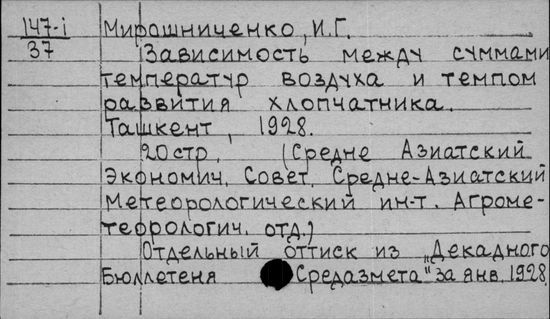 147-i Мирошниченко, И.Г.
37 Зависимость между суммами
температур воздуха и темпом
развития хлопчатника.
Ташкент, 1928.
20стр. (Средне Азиатский
Экономич. Совет. Средне-Азиатский
Метеорологический ин-т. Агроме-
теорологич. отд.)
Отдельный оттиск из „Декадного
Бюллетеня Средазмета" за янв. 1928